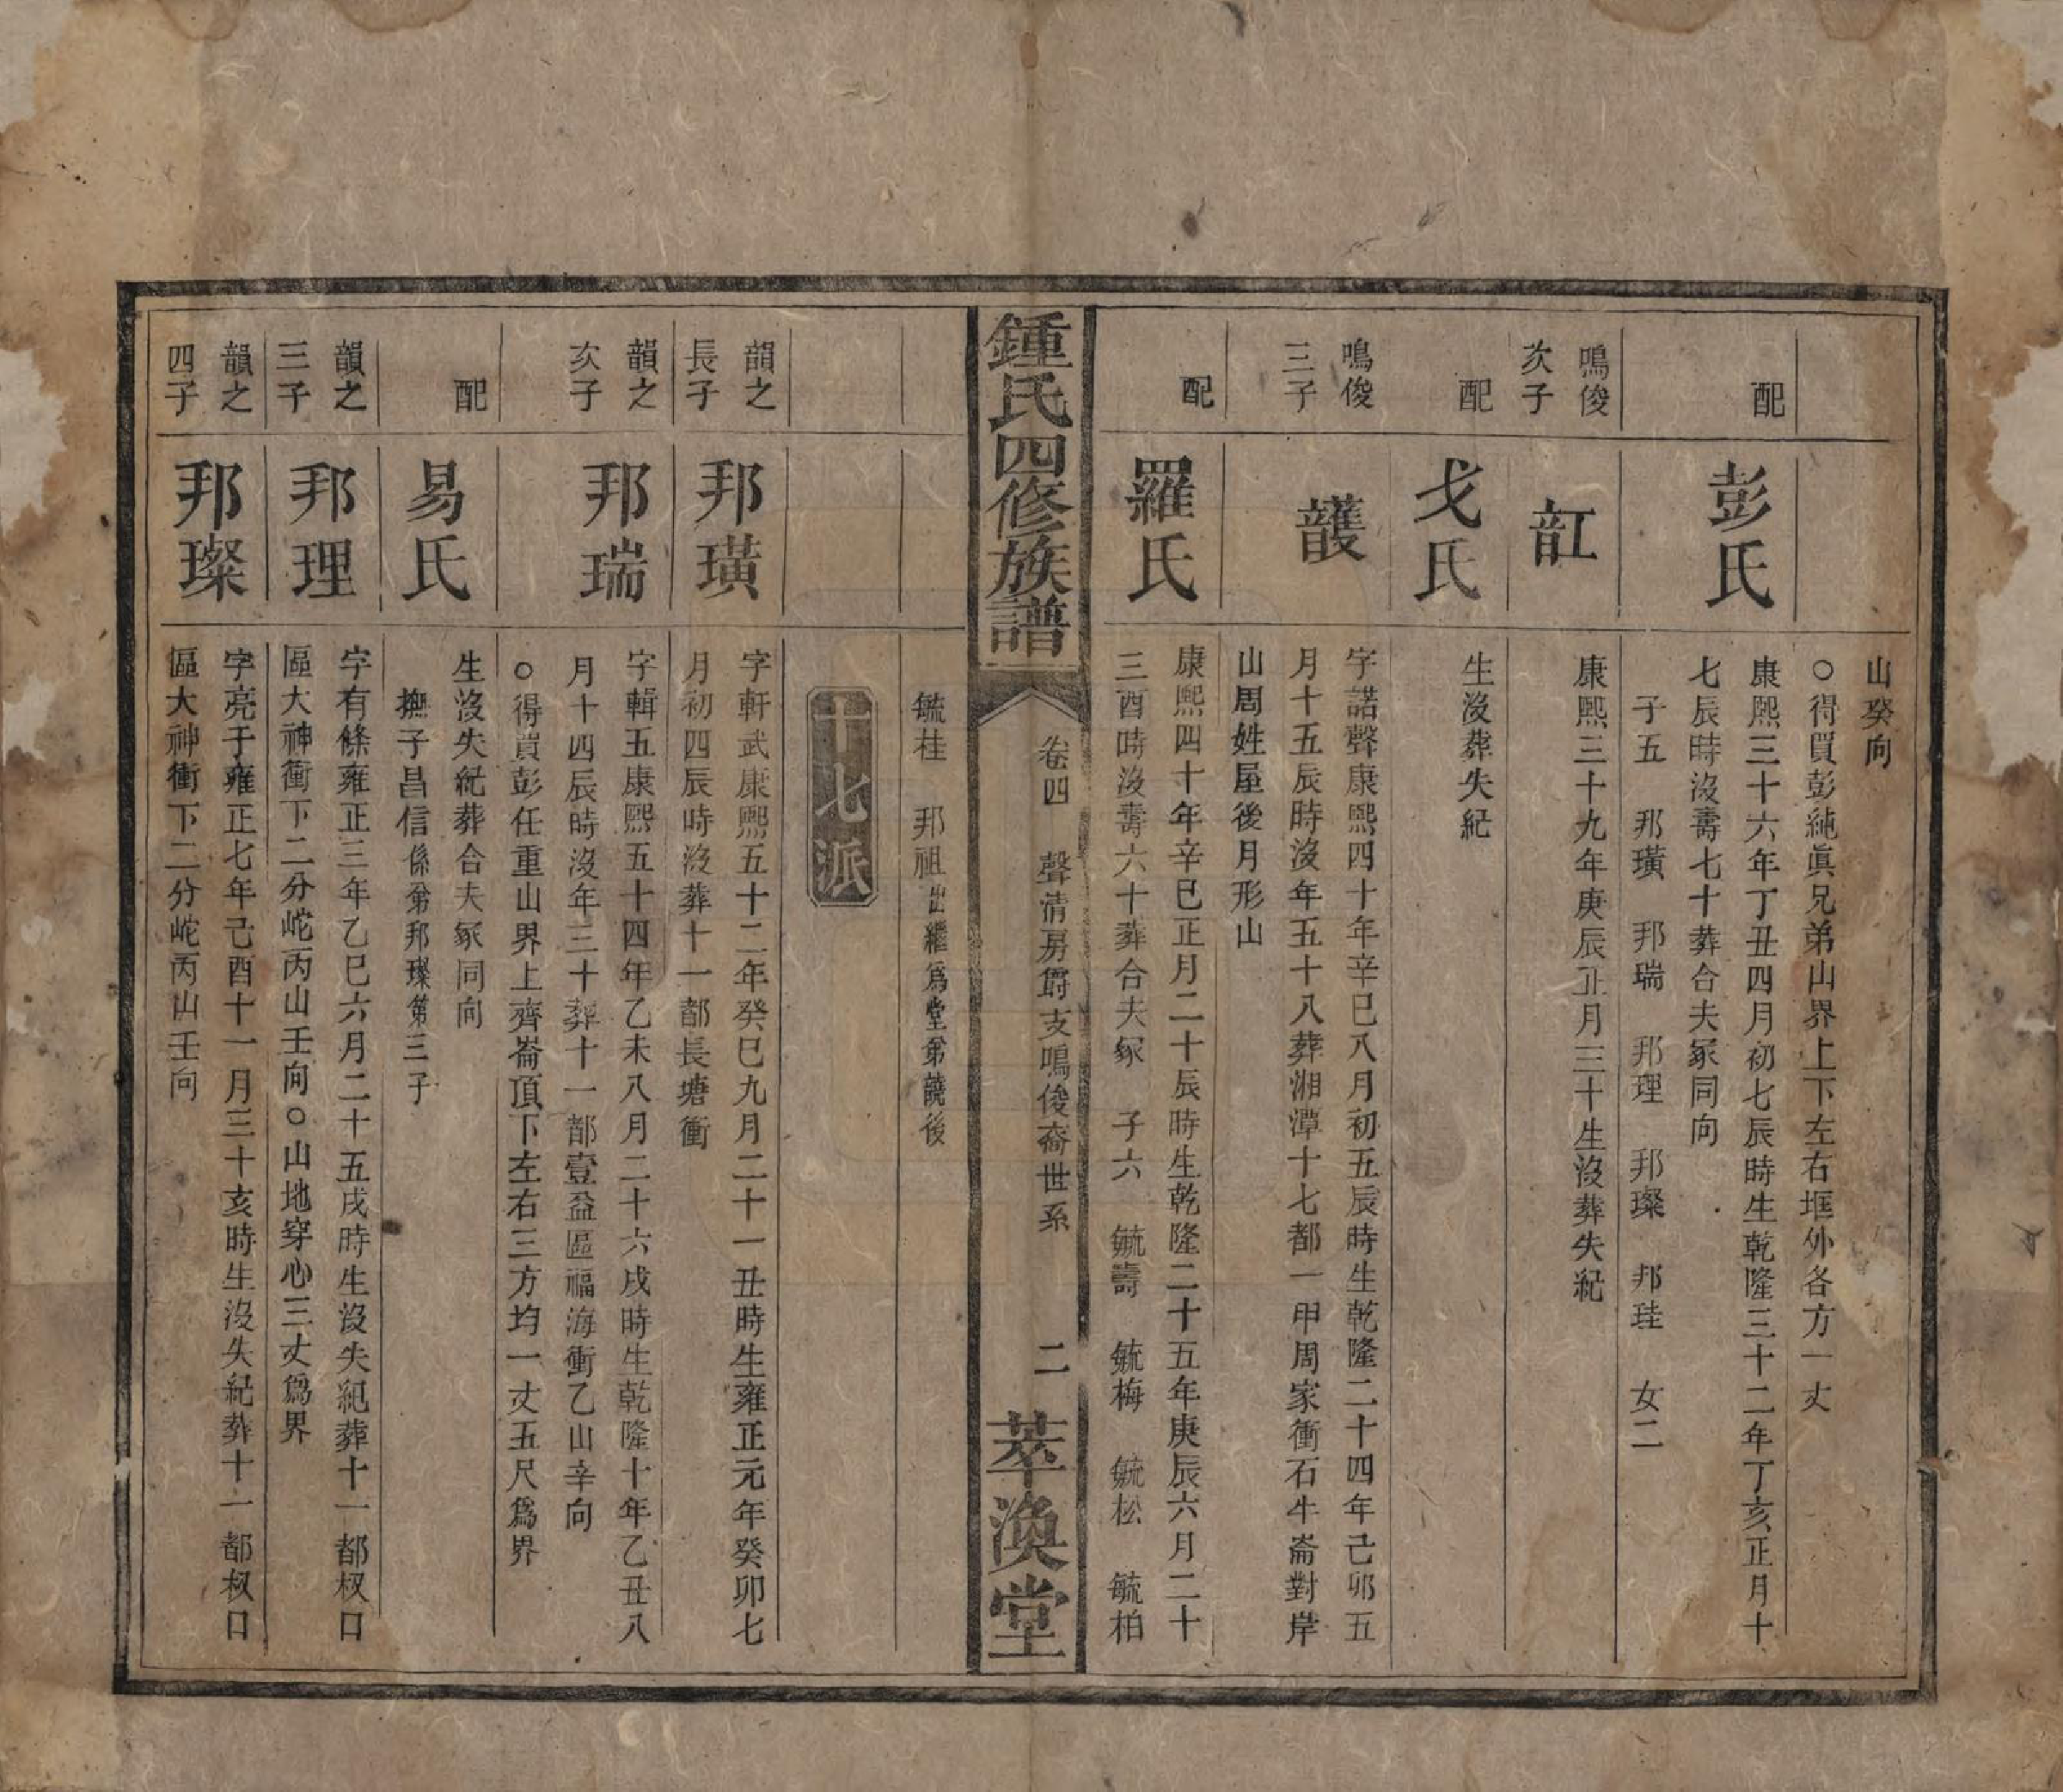 山癸向
○得買彭純眞兄弟山界上下左右堆外各方一丈
配
彭氏
康熙三十六年丁丑四月初七辰時生乾隆三十二年丁亥正月十
七辰時沒壽七十葬合夫冢同向
子五 邦璜 邦瑞 邦理 邦璨 邦珪 女二
鳴俊
次子
康熙三十九年庚辰正月三十生沒葬失紀
配
戈氏
生沒葬失紀
鳴俊
三子
頀
字諾聲康熙四十年辛巳八月初五辰時生乾隆二十四年己卯五
月十五辰時沒年五十八葬湘潭十七都一甲周家衝石牛崙對岸
山周姓屋後月形山
配
羅氏
康熙四十年辛巳正月二十辰時生乾隆二十五年庚辰六月二十
三酉時沒壽六十葬合夫冢 子六 毓壽 毓梅 毓松 毓柏
鍾氏四修族譜
卷四 聲清房爵支鳴俊裔世系 二
萃渙堂
毓桂 邦祖出繼爲堂弟護後
十七派
韻之
長子
邦璜
字軒武康熙五十二年癸巳九月二十一丑時生雍正元年癸卯七
月初四辰時沒葬十一都長塘衝
韻之
次子
邦瑞
字輯五康熙五十四年乙未八月二十六戌時生乾隆十年乙丑八
月十四辰時沒年三十葬十一都壹益區福海衝乙山辛向
○得買彭任重山界上齊崙頂下左右三方均一丈五尺爲界
配
易氏
生沒失紀葬合夫冢同向
撫子昌信係弟邦璨第三子
韻之
三子
邦理
字有條雍正三年乙巳六月二十五戌時生沒失紀葬十一都杈口
區大神衝下二分岮丙山壬向○山地穿心三丈爲界
韻之
四子
邦璨
字亮于雍正七年己酉十一月三十亥時生沒失紀葬十一都杈口
區大神衝下二分岮丙山壬向